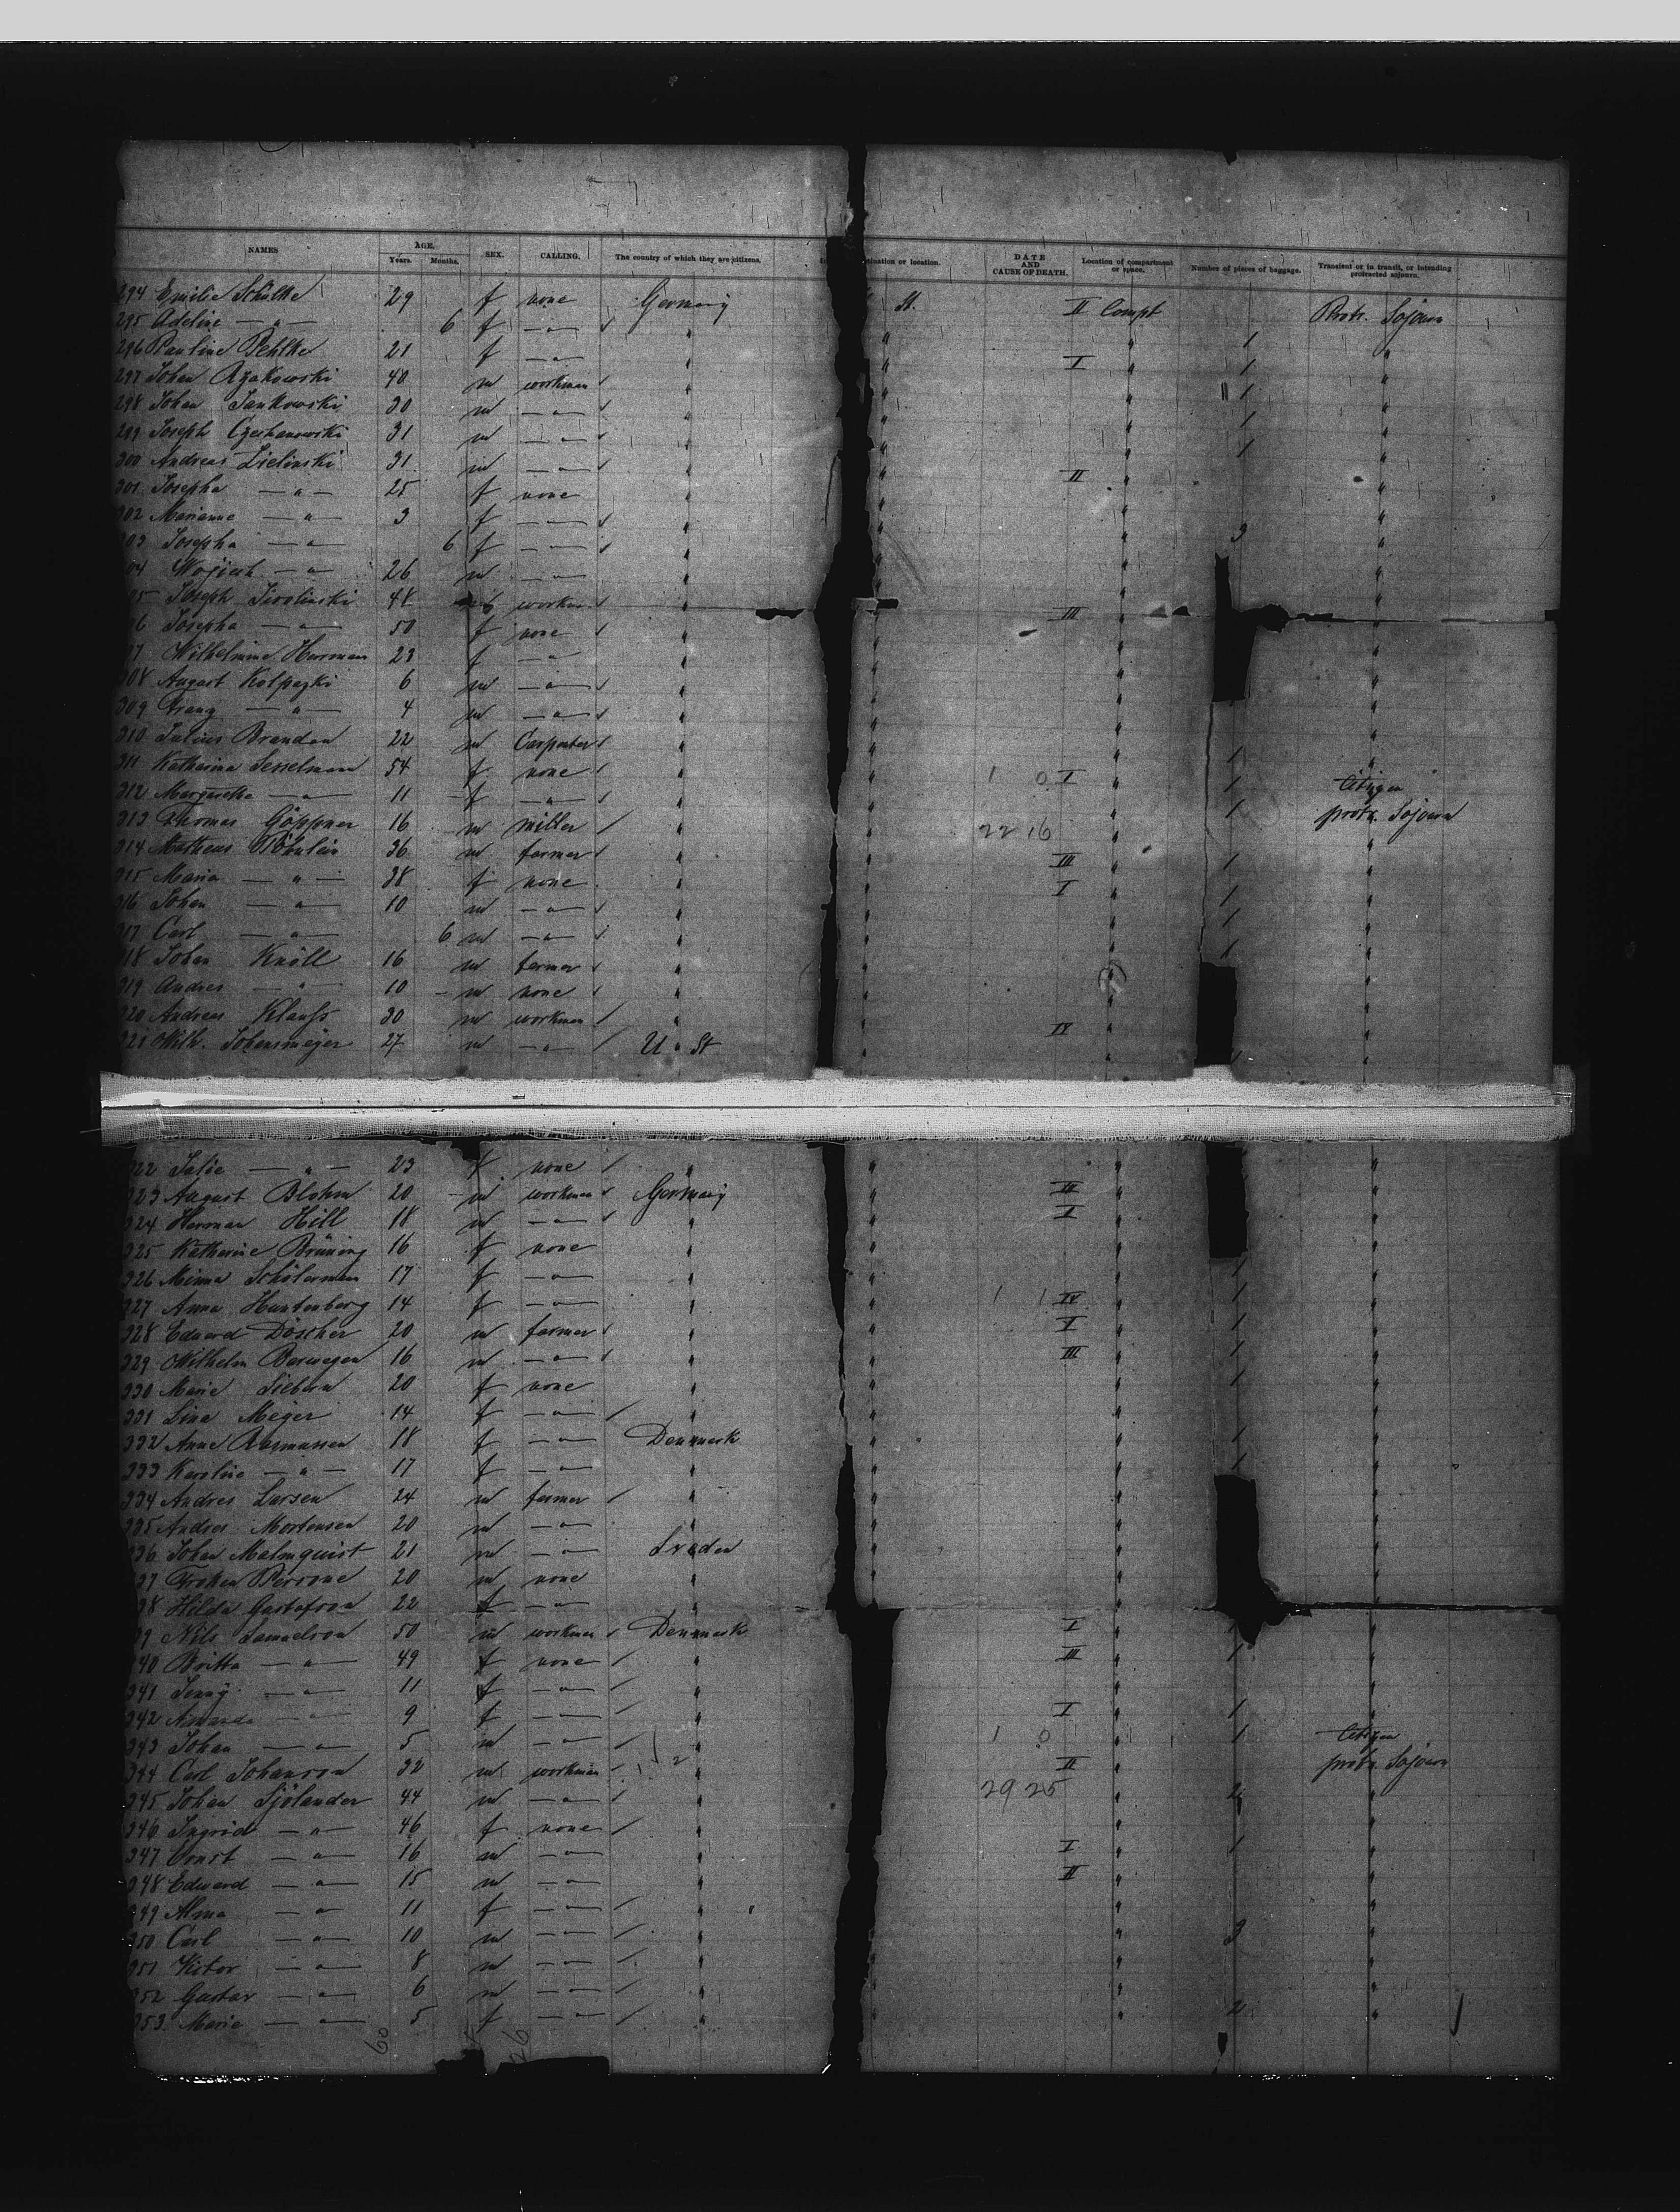 NAMES AGE. Years. Months. SEX. CALLING. The country of which they are citizens. ination or location. DATE AND CAUSE OF DEATH. Location of compartment or space. Number of pieces of baggage. Transient or in transit, or intending protracted sojourn.
294 Emilie Schülke 29 f none Germany St. II Compt Protr. Sojourn
295 Adeline — " — 6 f — " — 1
296 Pauline Pehlke 21 f — " — I 1
297 Johan 40 m workman 1
298 Johan Jankowski 30 m — " — 1
299 Joseph Czechanowski 31 m — " — 1
300 Andreas Zielinski 31 m — " — II
301 Josepha — " — 25 f none
302 Marianne — " — 3 f — " —
303 Josepha — " — 6 f — " — 3
04 Wojciech — " — 26 m — " —
05 Joseph 48 workm III
6 Josepha — " — 50 f none
7 Wilhelmine Herrman 23 f — " —
308 August 6 m — " —
309 Franz — " — 4 m — " —
310 Julius Brandon 22 m Carpenter 1
311 Katharina Sesselman 54 f none 1 0 I 1 Citizen
312 Margaretha — " — 11 f — " — 1 protr. Sojourn
313 Thomas Göppner 16 m miller 22 16
314 Matheus 36 m farmer III 1
315 Maria — " — 38 f none I 1
316 Johan — " — 10 m — " — 1
317 Carl — " — 6 m — " — 1
318 Johan Knöll 16 m farmer
319 Andres — " — 10 m none
320 Andreas Klauss 30 m workman IV
321 Wilh. Johensmeyer 27 m — " — U " St
322 Julie — " — 23 f none
323 August Blohm 20 m workman Germany III
324 Herman Hill 18 m — " — I
325 Katharine Brüning 16 f none
326 Minna Schölerman 17 f — " — 1
327 Anna Huntenberg 14 f — " — 1 1 IV 1
328 Eduard Döscher 20 m farmer I 1
329 Wilhelm Barwegen 16 m — " — III 1
330 Marie Siebern 20 f none 1
331 Lina Meyer 14 f — " —
332 Anne Rasmussen 18 f — " — Denmark 1
333 Karoline — " — 17 f — " — 1
334 Andres Larsen 24 m farmer
335 Andres Mortensen 20 m — " —
336 Johan Malmquist 21 m — " — Sveden
337 20 m none
38 Hilda Gustafson 22 f — " —
39 Nils Samuelson 50 m workman Denmark I
340 Britta — " — 49 f none III 1
341 Jenny — " — 11 f — " —
342 Amanda — " — 9 f — " — I 1
343 Johan — " — 5 m — " — 1 0 1 Citizen
344 Carl Johanson 32 m workman 2 II protr. Sojourn
345 Johan Sjölander 44 m — " — 29 25 2
346 Ingrid — " — 46 f none
347 Ernst — " — 16 m — " — I 1
348 Edward — " — 15 m — " — II
349 Alma — " — 11 f — " —
350 Carl — " — 10 m — " — 3
351 Victor — " — 8 m — " —
352 Gustav — " — 6 m — " —
353 Marie — " — 5 f — " — 2
60 26